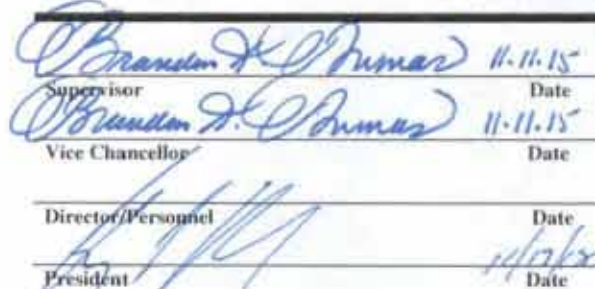 Brandon H. 11.11.15
Supervisor Date
Brandon H. 11.11.15
Vice Chancellor Date
Director/Personnel Date
President Date